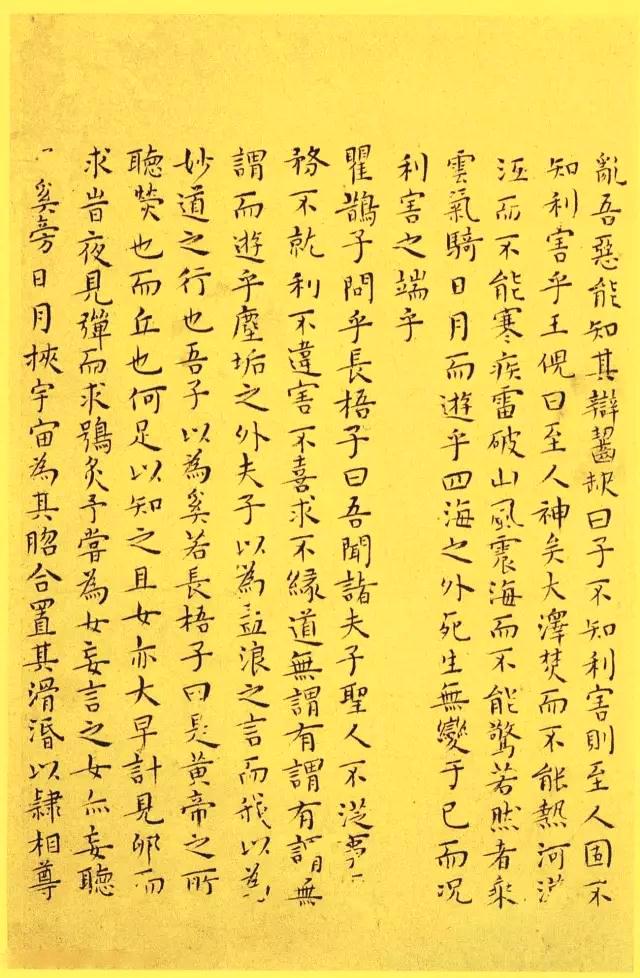 亂吾惡能知其辯齧缺曰子不知利害則至人固不
知利害乎王倪曰至人神矣大澤焚而不能熱河漢
沍而不能寒疾雷破山風震海而不能驚若然者乘
雲氣騎日月而遊乎四海之外死生無變于己而况
利害之端乎
瞿鵲子問乎長梧子曰吾聞諸夫子聖人不從事
務不就利不違害不喜求不緣道無謂有謂有謂無
謂而遊乎塵垢之外夫子以為孟浪之言而我以為
妙道之行也吾子以為奚若長梧子曰是黃帝之所
聽熒也而丘也何足以知之且女亦大早計見卵而
求旹夜見彈而求鴞炙予嘗為女妄言之女亦妄聽
奚旁日月挾宇宙為其脗合置其滑涽以隸相尊